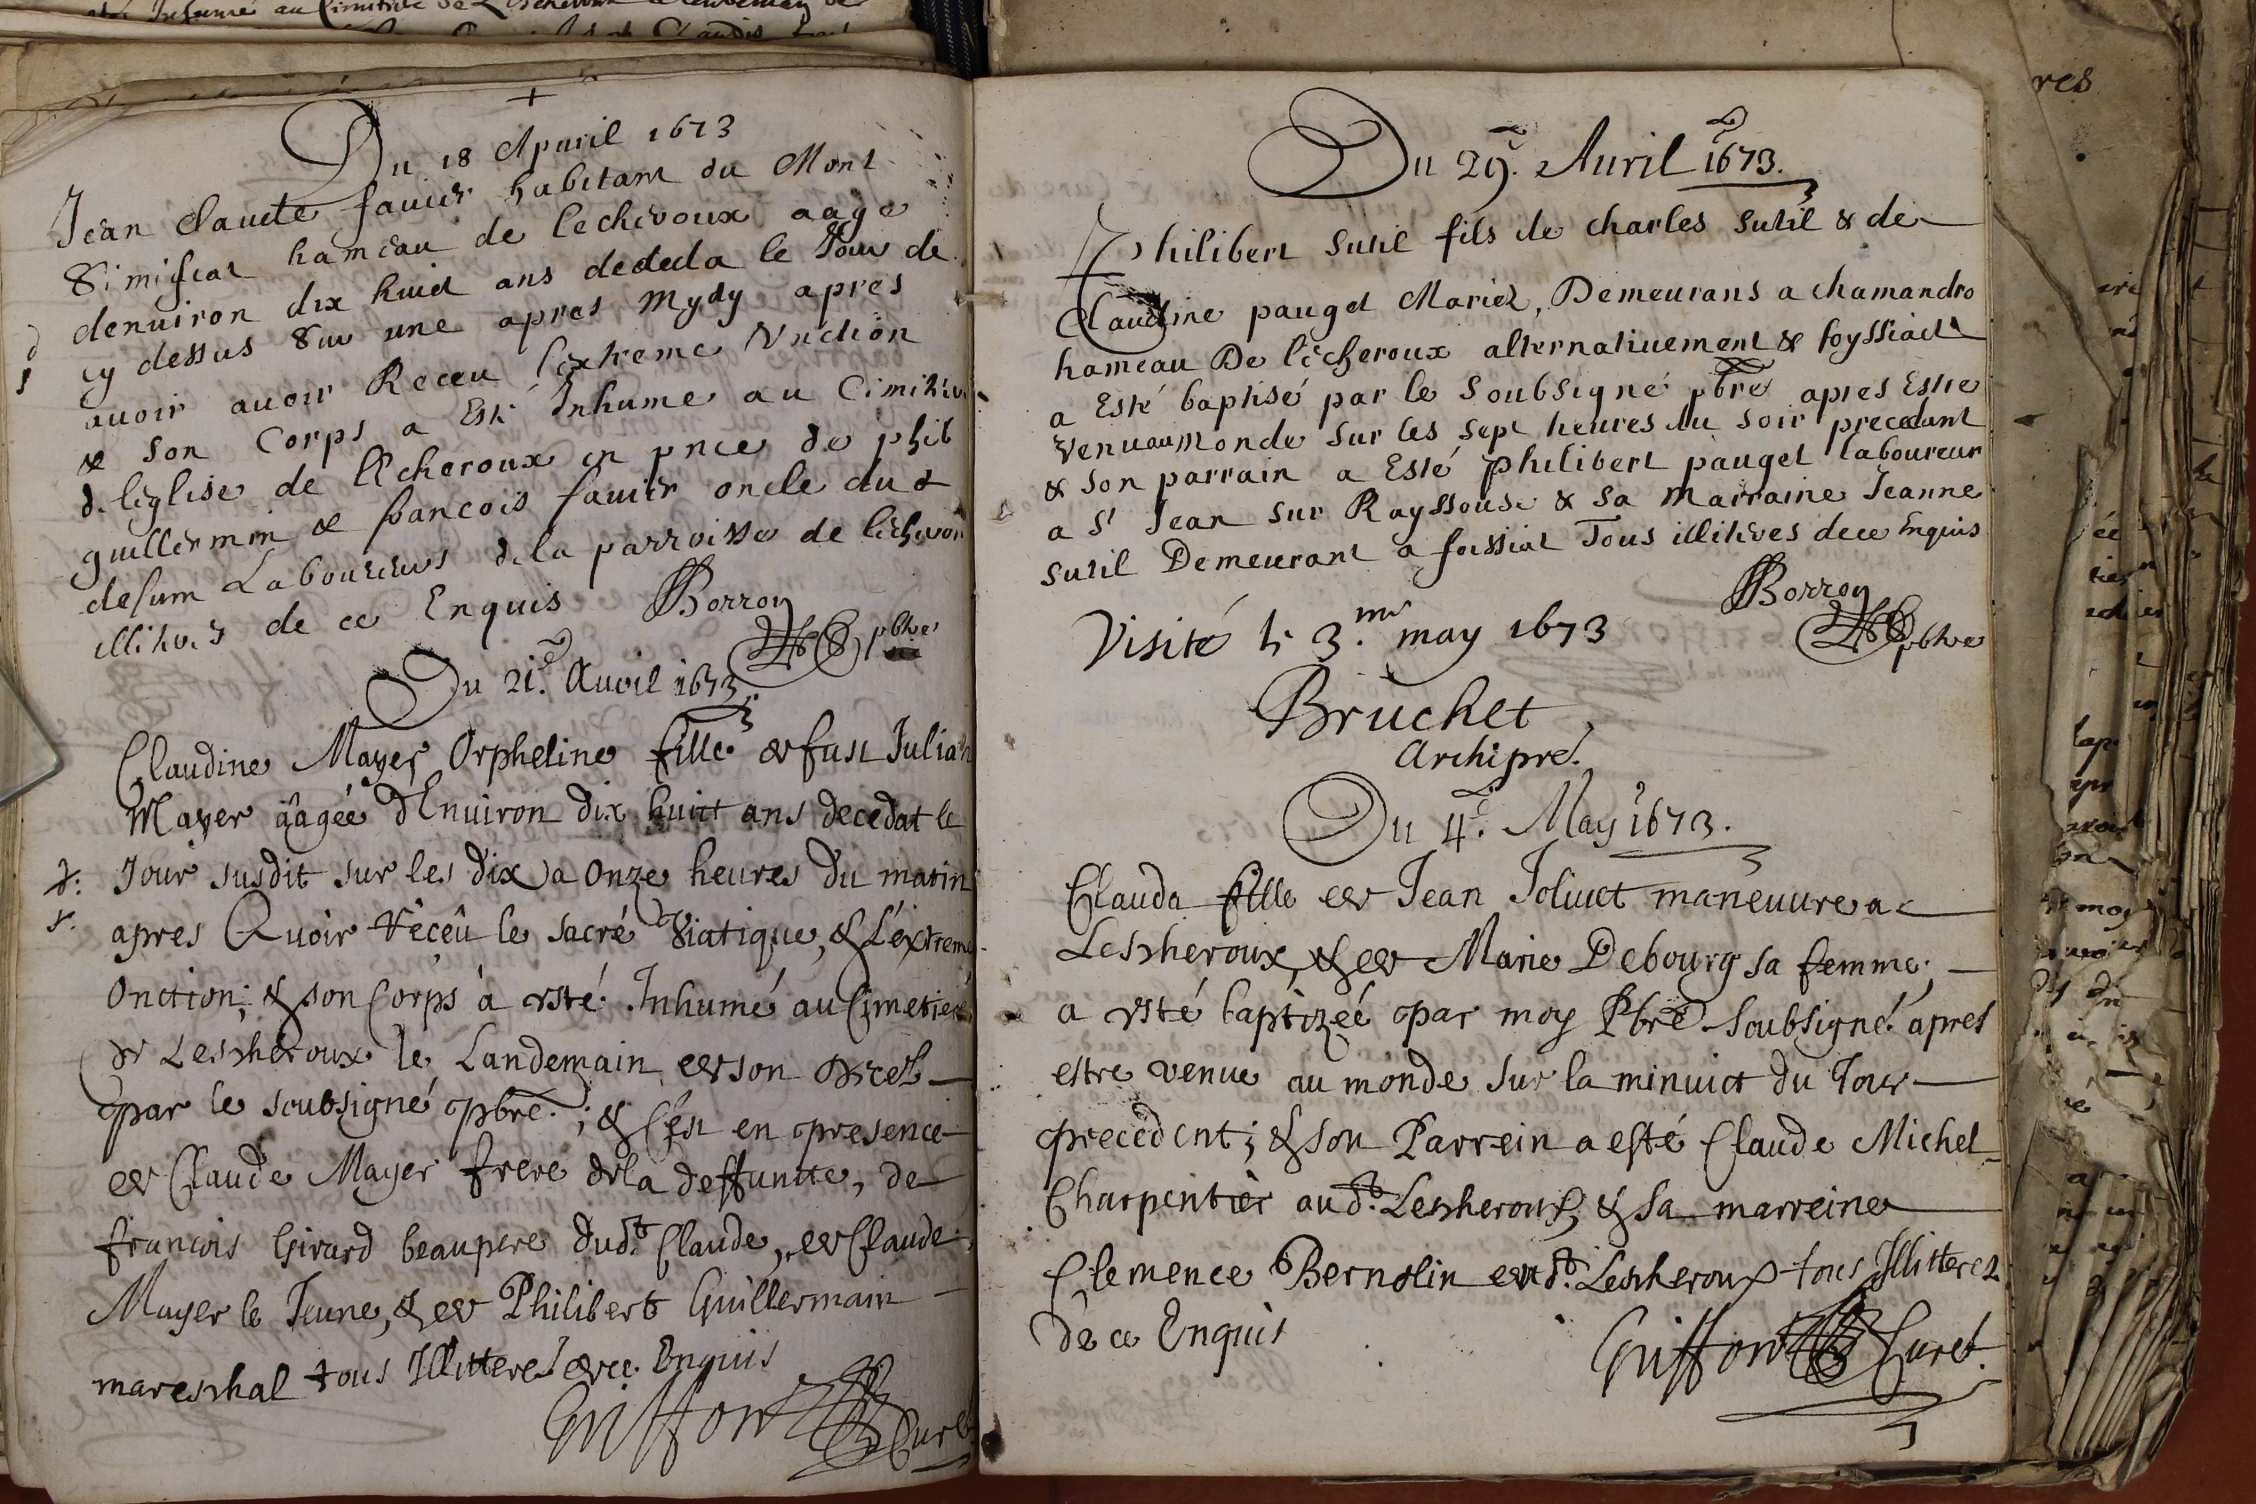 Du 18 Apuril 1673
Jean Claude fauier habitant du Mont
Simifiat hameau de lecheroux aage
denuiron dix huict ans dededa le Jour de
cy dessus Sur une apres mydy apres
auoir auoir Receu lextreme Vnction
& son Corps a Esté Inhume au Cimitier
d. leglise de lécheroux en pnce de phib
guillermin & francois fauier oncle dud
defunt Laboureurs dela parroisse de lécheroux
illiteres de ce Enquis
Borron
pbtre
Du 21e. Auril 1673
Claudine Mayer Orpheline fille de fust Julian
Mayer âagée d'Enuiron dix huict ans decedat le
d: Jour susdit sur les dix a onze heures du matin
apres Auoir réceû le sacré Viatique, & L'éxtreme
Onction; & son Corps à esté. Inhumé au Cimetiere
de Lescheroux le Landemain de son decez
par le soubsigné pbre.; & C'est en presence
de Claude Mayer frere de la deffuncte, de
francois Girard beaupere dudt. Claude, de Claude
Mayer le Jeune, & de Philibert Guillermain
mareschal tous Illitterés de ce Enquis
Griffon Curé
Du 29e. Auril 1673.
Philibert sutil fils de charles sutil & de
Claudine pauget Mariez, Demeurans a chamandro
hameau De lécheroux alternatiuement & foyssiact
a Esté baptisé par le soubsigné pbre apres Estre
venu au Monde sur les sept heures du soir precedant
& son parrain a Esté philibert pauget laboureur
a St Jean sur Rayssouse & sa marraine Jeanne
sutil Demeurant a foissiat Tous illiteres de ce Enquis
Borron
pbtre
Visité le 3.me may 1673
Bruchet
Archipré.
Du 4e. May 1673.
Clauda fille de Jean Joliuet maneuure a
Lescheroux, & de Marie Debourg sa femme;
a esté baptizeé par moy Pbre soubsigné apres
estre venue au monde sur la minuict du Jour
precedent; & son Parrein a esté Claude Michel
Charpentier audt. Lescheroux, & sa marreine
Clemence Bernolin dudt. Lescheroux tous Illitterez
de ce Enquis
Griffon Curé.